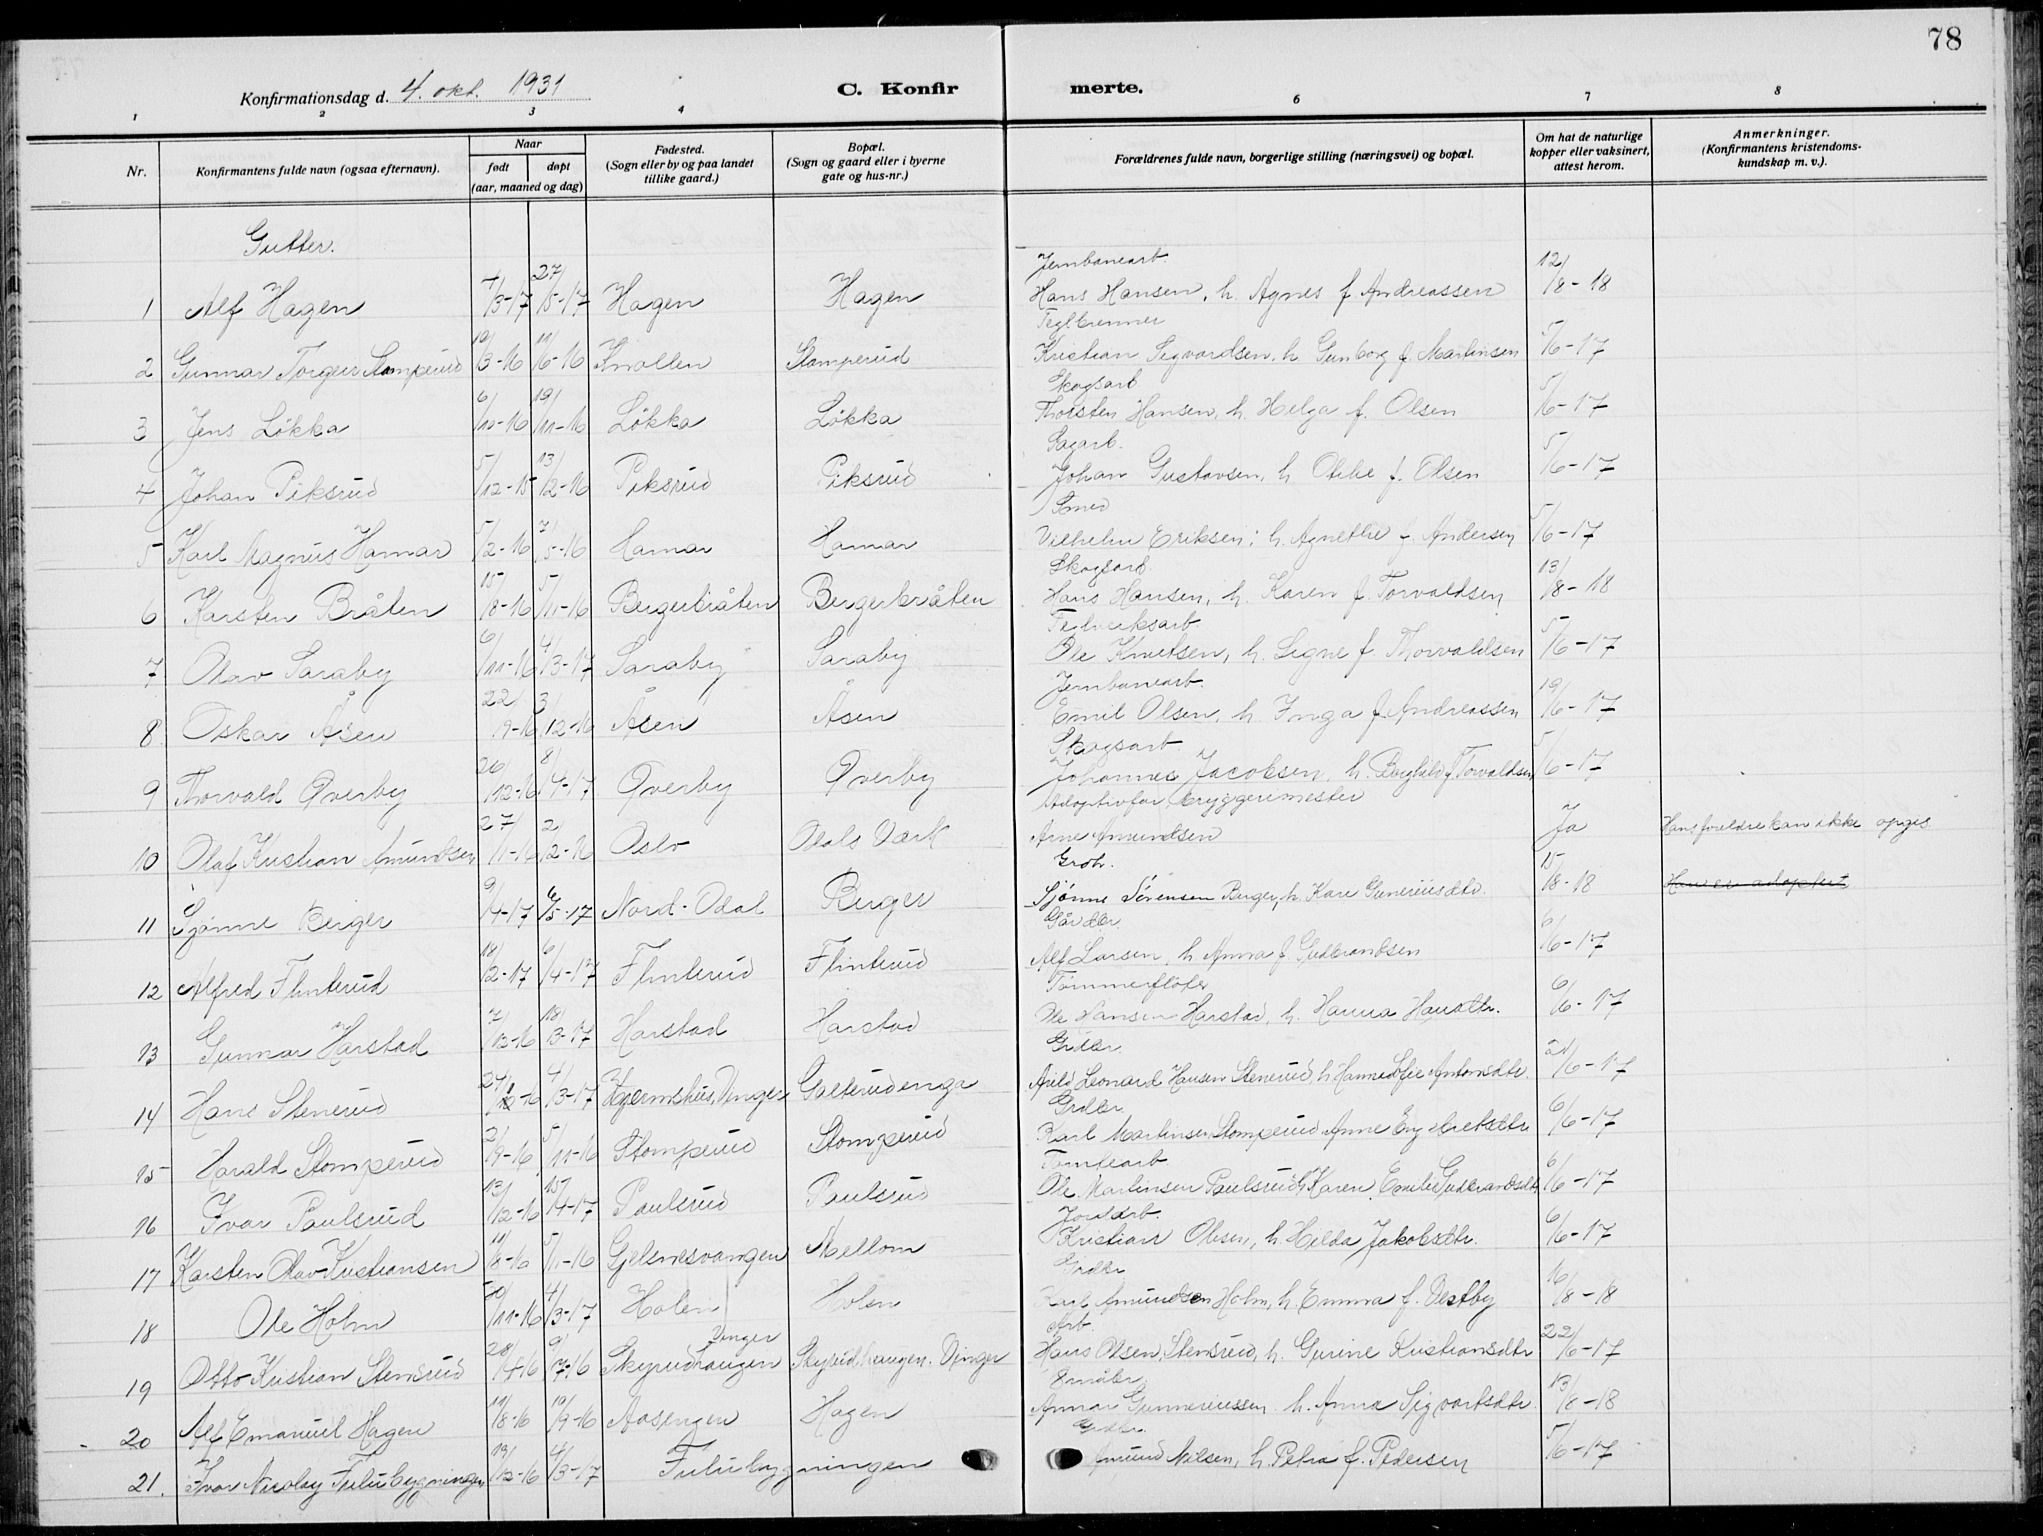 78
Konfirmationsdag d. 4. okt. 1931
C. Konfir merte.
1 2 3 4 6 7 8
Nr. Konfirmantens fulde navn (ogsaa efternavn). Naar født døpt (aar, maaned og dag) Fødested. (Sogn eller by og paa landet tillike gaard.) Bopæl. (Sogn og gaard eller i byerne gate og hus-nr.) Forældrenes fulde navn, borgerlige stilling (næringsvei) og bopæl. Om hat de naturlige kopper eller vaksinert, attest herom. Anmerkninger. (Konfirmantens kristendomskundskap m. v.).
Gutter.
Jernbanearb.
1 Alf Hagen 27/5-17 Hagen Hagen Hans Hansen, h. Agnes f. Andreassen 12/8-18
Teglbrenner
2 Gunnar Torgeir Stomperud 10/3-16 11/6-16 Knollen Stomperud Kristian Sigvardsen, h. Gunborg f. Martinsen 5/6-17
Skogsarb.
3 Jens Løkka 6/10-16 19/11-16 Løkka Løkka Thorsten Hansen, h. Helga f. Olsen 5/6-17
Sagarb.
4 Johan Piksrud 5/12-15 13/2-16 Piksrud Piksrud Johan Gustavsen, h. Otilie f. Olsen 5/6-17
Smed
5 Karl Magnus Hamar 5/2-16 7/5-16 Hamar Hamar Vilhelm Eriksen, h. Agnethe f. Andersen 5/6-17
Skogsarb.
6 Karsten Bråten 15/8-16 5/11-16 Bergerbråten Bergerbråten Hans Hansen, h. Karen f. Torvaldsen 13/8-18
Teglverksarb.
7 Olav Saraby 6/11-16 4/3-17 Saraby Saraby Ole Knutsen, h. Signe f. Thorvaldsen 5/6-17
Jernbanearb.
8 Oskar Åsen 22/9-16 3/12-16 Åsen Åsen Emil Olsen, h. Inga f. Andreassen 19/6-17
Skogsarb.
9 Thorvald Øverby 26/12-16 8/4-17 Øverby Øverby Johannes Jacobsen, h. Borghild f. Torvaldsen 5/6-17
Adoptivfar, bryggerimester
10 Olaf Kristian Amundsen 27/1-16 2/2-16 Oslo Odals Værk Arne Amundsen Ja Hans foreldre kan ikke opgis
Grdbr.
11 Sjønne Berger 9/4-17 6/5-17 Nord-Odal Berger Sjønne Sörensen Berger, h. Kare Gunereiusdtr. 15/8-18 Han er adoptert
Gårdbr.
12 Alfred Flinterud 18/2-17 6/4-17 Flinterud Flinterud Alf Larsen, h. Anna f. Gudbrandsen 6/6-17
Tømmerfløter
13 Gunnar Harstad 7/12-16 18/3-17 Harstad Harstad Ole Hansen Harstad, h. Hanna Hansdtr. 6/6-17
Grdbr.
14 Hans Stenerud 4/3-17 Galterudenga Leonard Hansen Stenerud, h. Hanne Sofie Antonsdtr. 21/6-17
Grdbr.
15 Harald Stomperud 2/9-16 5/11-16 Stomperud Stomperud Karl Martinsen Stomperud, Anne Engebretsdtr 6/6-17
Tomtearb.
16 Ivar Paulsrud 13/12-16 15/4-17 Paulsrud Paulsrud Ole Martinsen Paulsrud, h. Karen Emilie Gudbrandsdtr 6/6-17
Jordarb.
17 Karsten Olav Kristiansen 11/8-16 5/11-16 Gjelsnesvangen Mellom Kristian Olsen, h. Hilda Jakobsdtr. 6/6-17
Grdbr.
18 Ole Holm 4/3-17 Holen Holen Karl Amundsen Holm, h. Emma f. Vestby 16/8-18
Arb.
19 Otto Kristian Stensrud 9/7-16 Skyrudhaugen Vinger Skyrudhaugen. Vinger Hans Olsen Stensrud, h. Gurine Kristiansdtr 22/6-17
Småbr.
20 Alf Emanuel Hagen 11/8-16 10/9-16 Aasengen Hagen Annar Gunnereiussen, h. Anna Sigvartsdtr. 13/8-18
Grdbr.
21. Ivar Nicolay Fulubygningen 19/12-16 4/3-17 Fulubygningen Amund Nilsen, h. Petra f. Pedersen 5/6-17